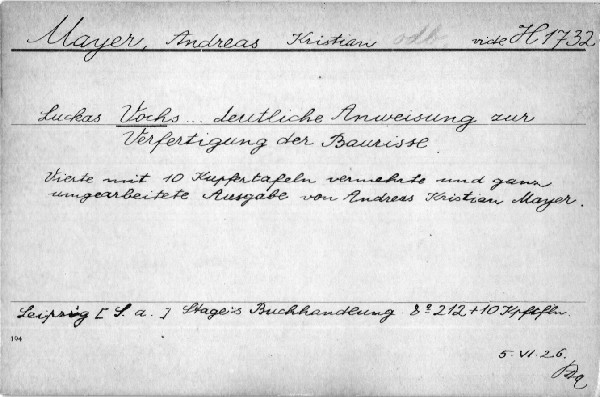 Mayer, Andreas Kristian odb vide H 1732
Luckas Vochs... deutliche Anweisung zur
Verfertigung der Baurisse.
Vierte mit 10 Kupfertafeln vermehrte und ganz
umgearbeitete Ausgabe von Andreas Kristian Mayer.
Leipzig [S. a.] Stage's Buchhandlung 8º 212+10 Kpftfln.
104
5. VI. 26.